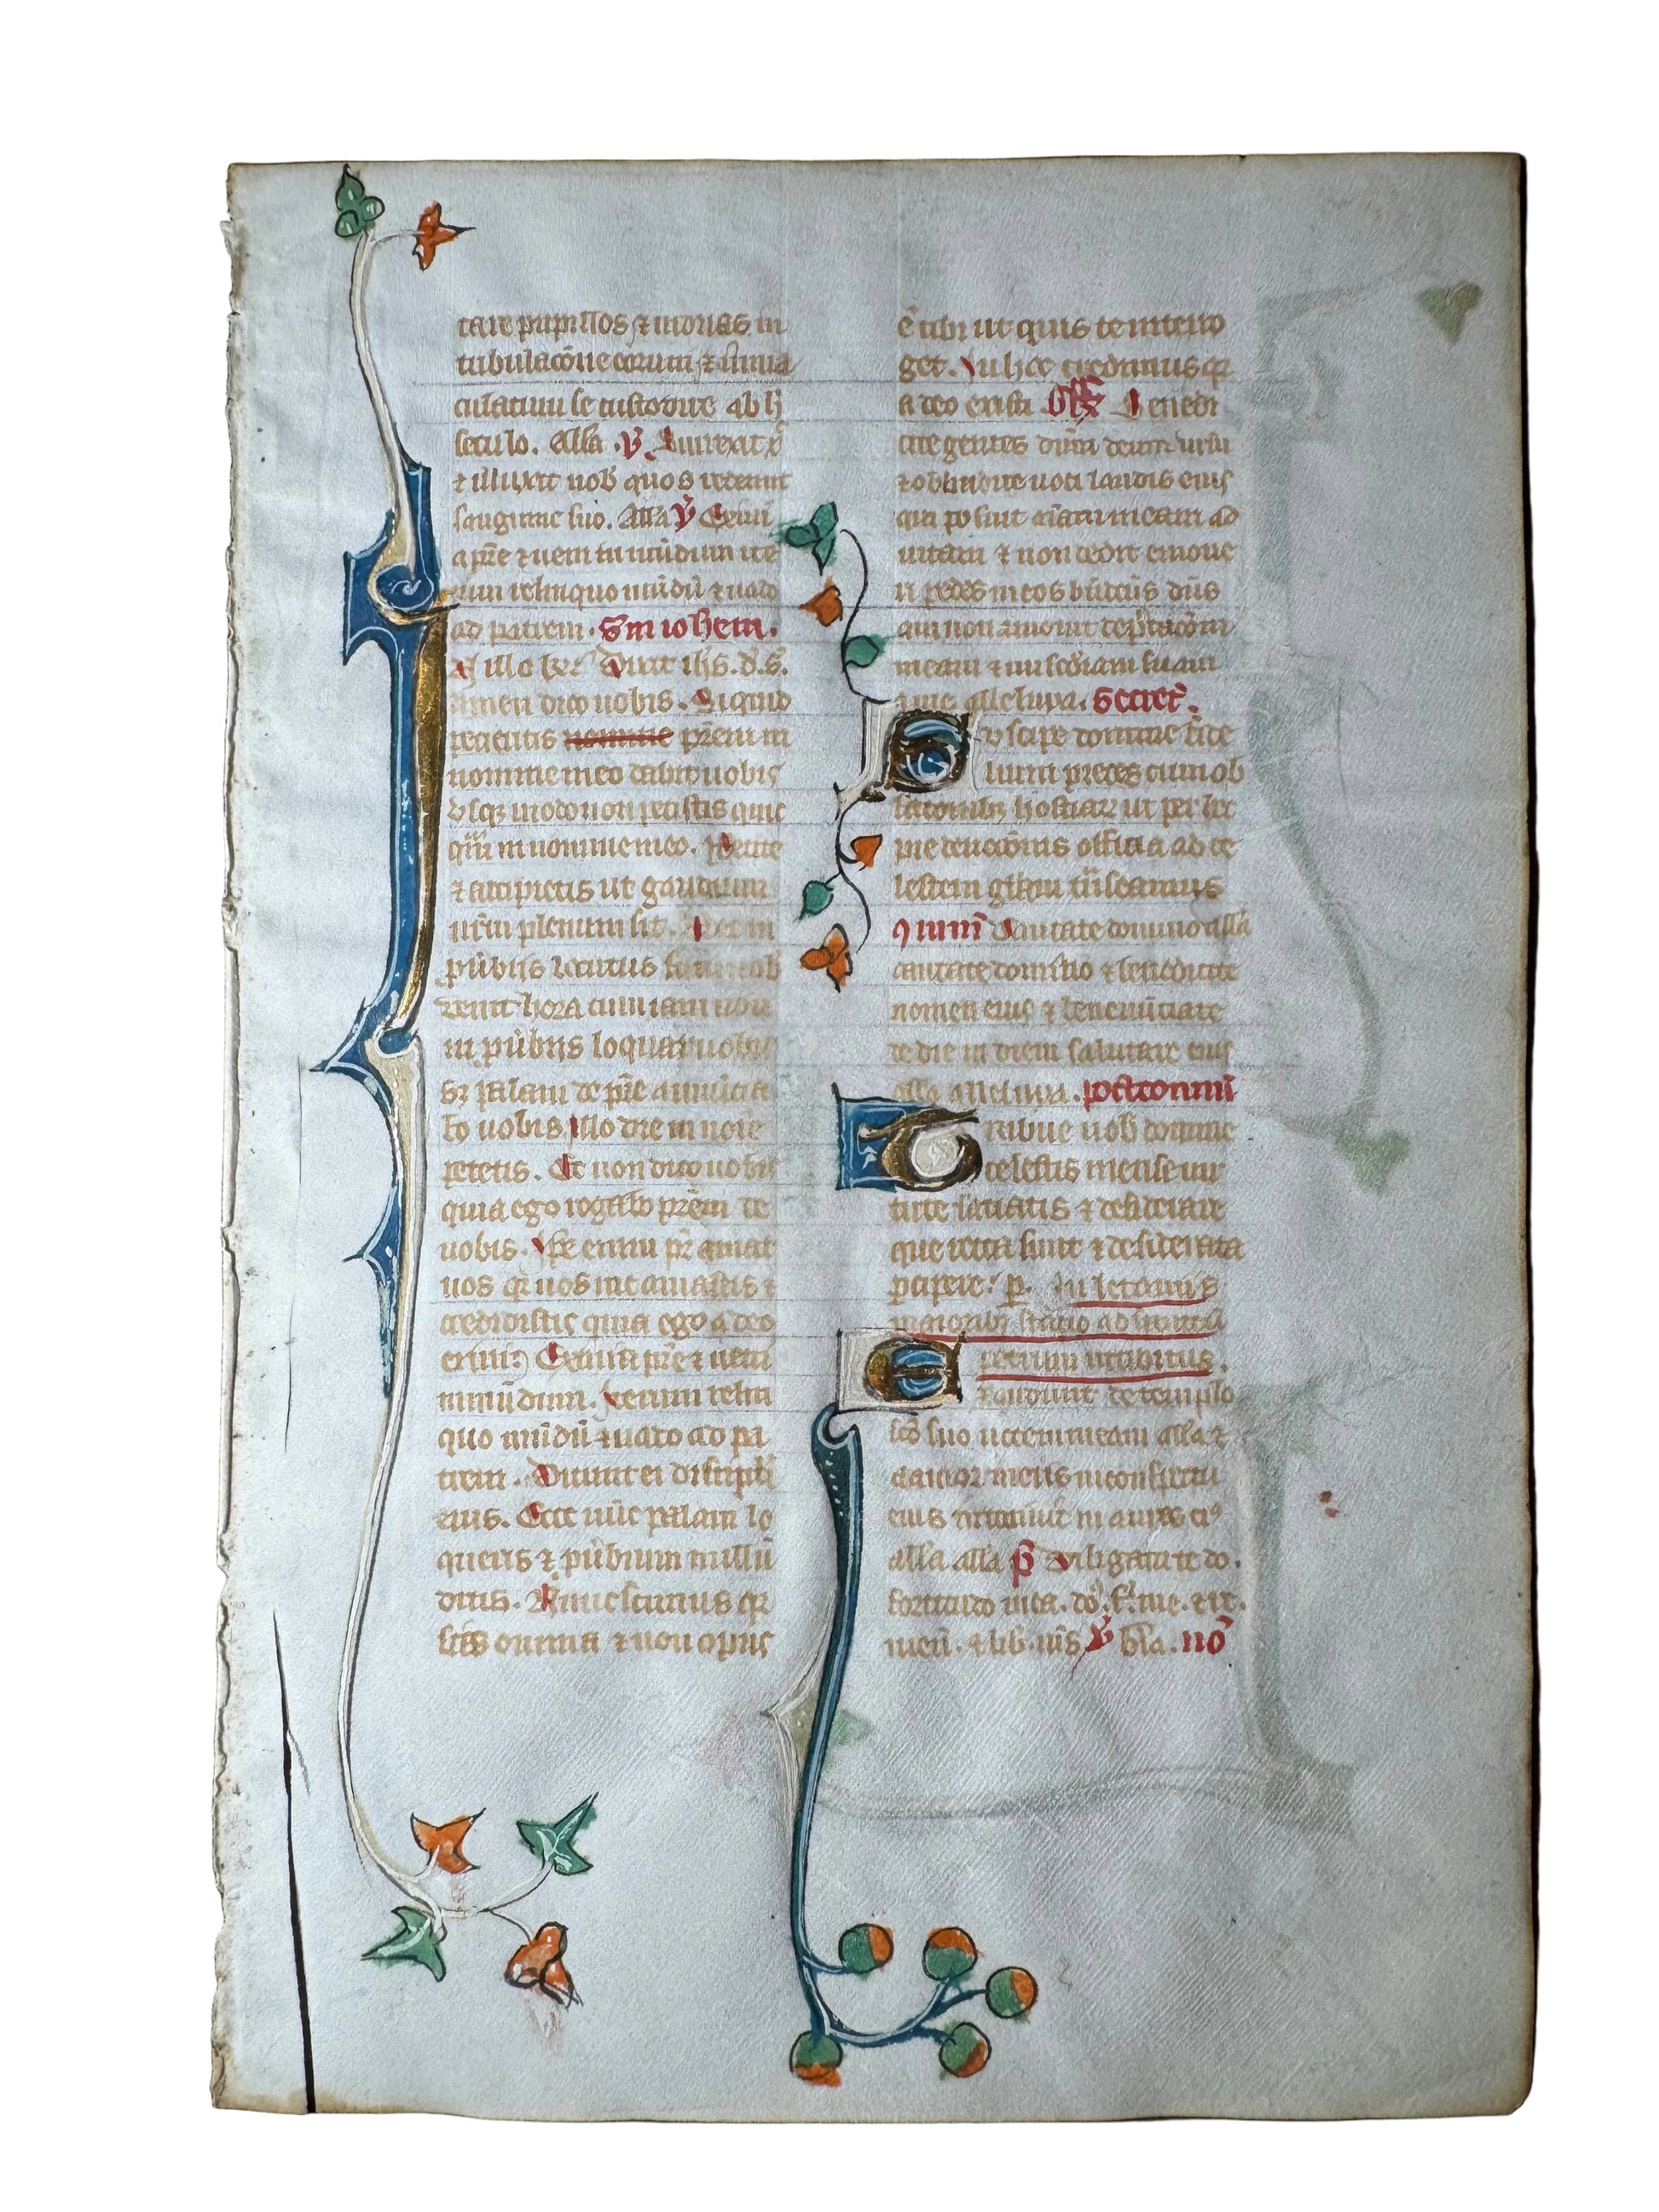 tare pupillos ⁊ uiduas in
tribulacōne eorum ⁊ inma
culatum se custodire ab h̄
seculo. Alla .v̄. Surrexit xp̄
⁊ illuxit nob̄ quos redemit
sanguine suo. Alla v̄ Exiui
a pr̄e ⁊ ueni in mūdum ite
rum relinquo mūdū ⁊ uado
ad patrem. Sm̄ ioħem.
In illo tp̄r Dixit ih̄s. d. s.
amen dico uobis. Siquid
petieritis nomine pr̄em in
nomine meo dabit uobis
vsq; modo non petistis quic
q̄m in nomine meo. Petite
⁊ accipietis ut gaudium
ur̄m plenum sit. Hec in
pūbiis locutus sum uob
venit hora cum iam non
in pūbiis loquar uobis
sꝫ palam de pr̄e annūcia
bo uobis Illo die in noīe
petetis. Et non dico uobis
quia ego rogabo pr̄em de
uobis. Ipse enim pr̄ amat
uos qr̄ uos me amastis ⁊
credidistis quia ego a deo
exiui: Exiui a pr̄e ⁊ ueni
in mūdum. Iterum relin
quo mūdū ⁊ uado ad pa
trem. Dicunt ei discipli
eius. Ecce nūc palam lo
queris ⁊ pūbium nullū
dicis. Nunc scimus qr̄
scis omnia ⁊ non opus
ē tibi ut quis te interro
get. In hoc credimus qr̄
a deo existi Off̄ Benedi
cite gentes dn̄m deum ur̄m
⁊ obaudite uoci laudis eius
qui posuit aīam meam ad
uitam ⁊ non dedit cmoue
ri pedes meos bn̄dictus dn̄s
qui non amouit dep̄cacōm
meam ⁊ miscdīam suam
a me alleluya. Secret̄.
Suscipe domine fide
lium preces cum ob
lationibꝫ hostiarꝫ ut per hec
pie deuocōnis officia ad ce
lestem gl̄iam tn̄seamus
9mun̄ Cantate domino all̄a
cantate domino ⁊ benedicite
nomen eius ⁊ benenūciate
de die in diem salutare eius
all̄a alleluya. postcomun̄
Tribue nob̄ domine
celestis mense uir
tute saciatis ⁊ desiderare
que recta sunt ⁊ desiderata
percipere. p̄. In letaniis
maioribꝫ statio ad sanctū
petrum
Exaudiuit de templo
sc̄o suo uocem meam all̄a ⁊
clamor meus in conspectu
eius introiuit in aures ei9
all̄a all̄a p̄ Diligam te do.
fortitudo mea. do. f. me. ⁊ re.
meū. ⁊ lib. m̄s v̄ gl̄a. nō